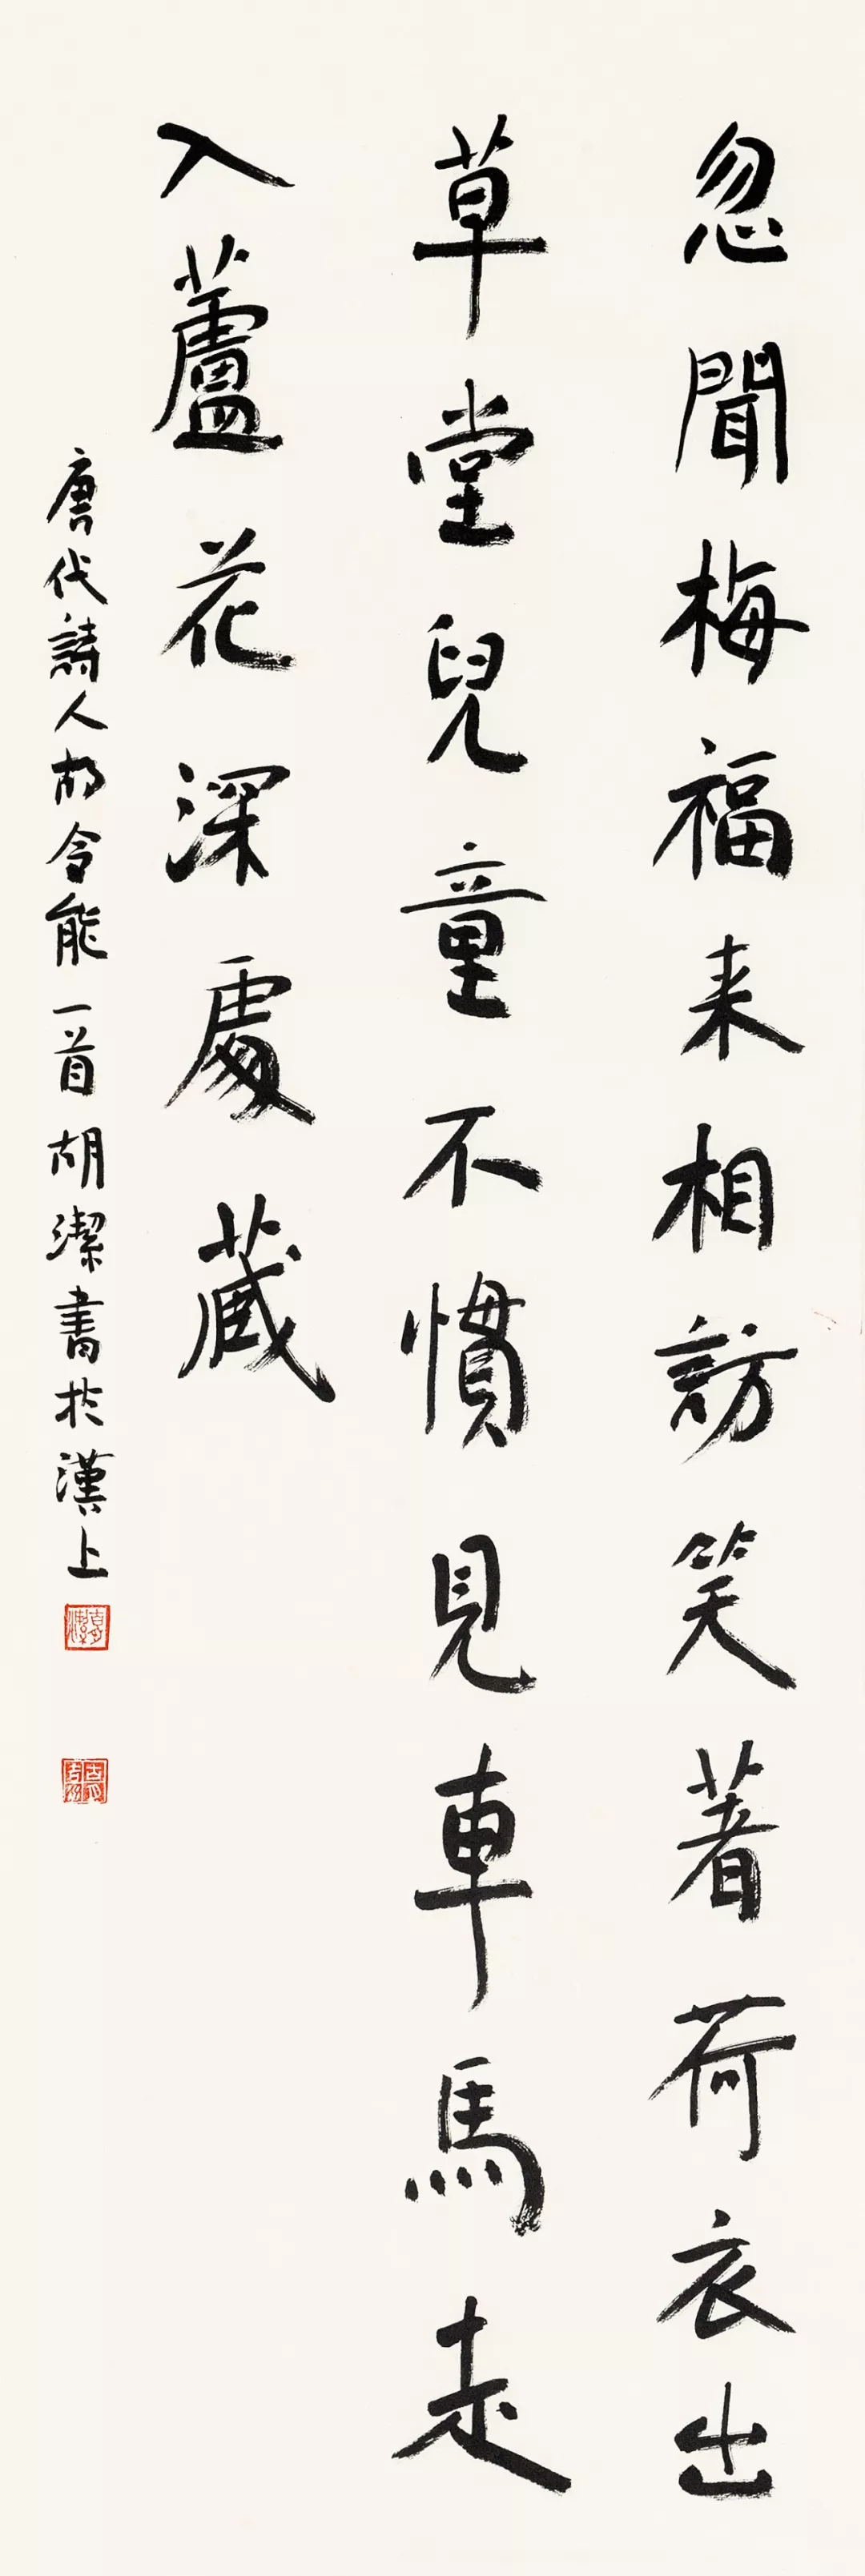 忽聞梅福来相訪笑著荷衣出
草堂兒童不慣見車馬走
入蘆花深處蔵
唐代詩人胡令能一首胡潔書於漢上